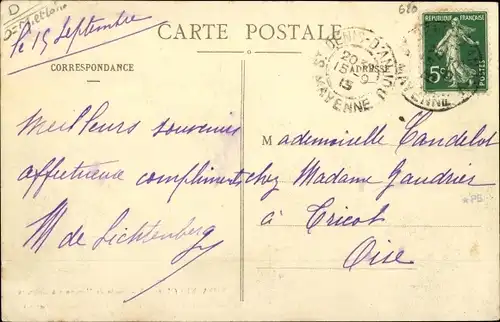 D
CARTE POSTALE
le 15 Septembre
CORRESPONDANCE
ADRESSE
ST DENIS-D'ANJOU
20
15 9
15
MAYENNE
RÉPUBLIQUE FRANÇAISE
5c
POSTES
Meilleurs souvenirs
affectueux compliments
M de Lichtenberg
Mademoiselle Candelot
chez Madame Gaudrier
à Tricot
Oise